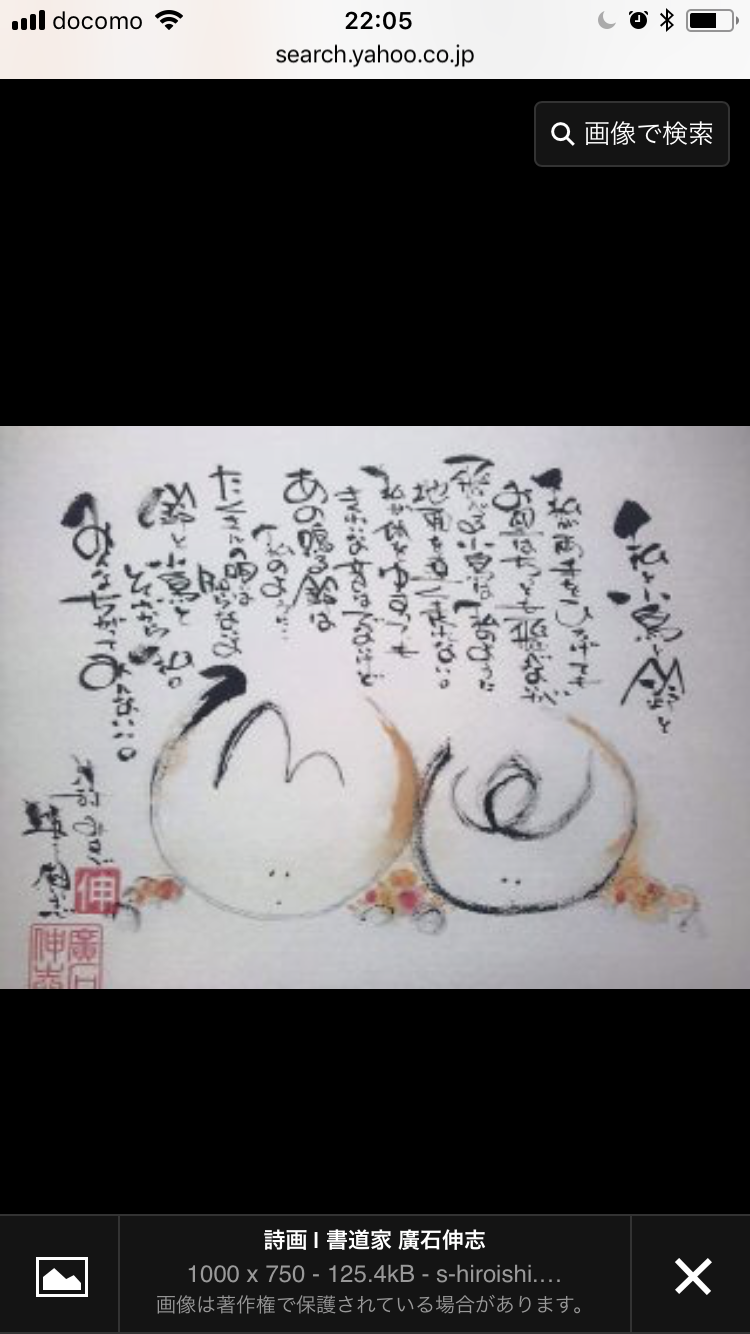 docomo
22:05
search.yahoo.co.jp
画像で検索
私と小鳥と鈴と
私が両手をひろげても
お空はちっとも飛べないが
飛べる小鳥は私のように
地面を速く走れない。
私が体をゆすっても
きれいな音はでないけど
あの鳴る鈴は
私のように…
たくさんの唄は知らないよ
鈴と小鳥と
それから私。
みんなちがってみんないい。
伸
廣石
伸志
詩画 | 書道家 廣石伸志
1000 x 750 - 125.4kB - s-hiroishi.…
画像は著作権で保護されている場合があります。